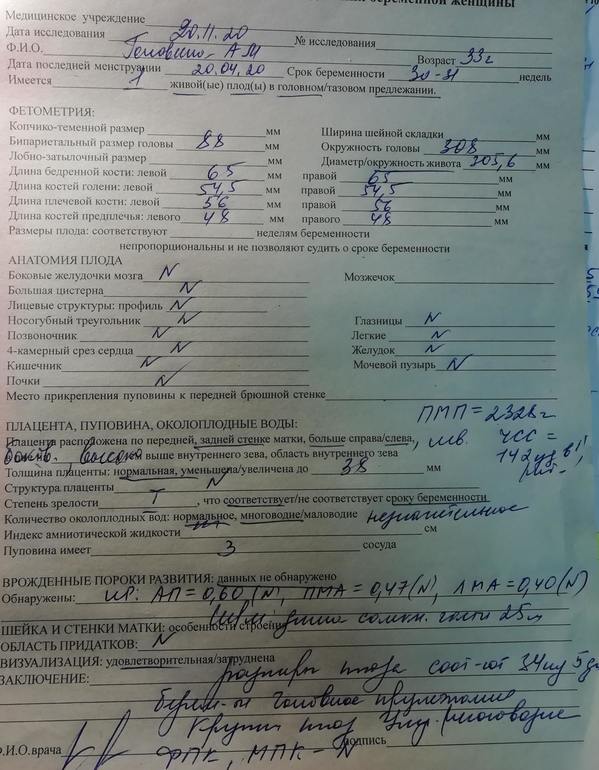 беременной женщины
Медицинское учреждение
Дата исследования 20.11.20 № исследования
Ф.И.О. А М Возраст 33г
Дата последней менструации 20.04.20 Срок беременности 30-31 недель
Имеется 1 живой(ые) плод(ы) в головном/тазовом предлежании.
ФЕТОМЕТРИЯ:
Копчико-теменной размер мм Ширина шейной складки мм
Бипариетальный размер головы 88 мм Окружность головы 308 мм
Лобно-затылочный размер мм Диаметр/окружность живота 305,6 мм
Длина бедренной кости: левой 65 мм правой 65 мм
Длина костей голени: левой 54,5 мм правой 54,5 мм
Длина плечевой кости: левой 56 мм правой 56 мм
Длина костей предплечья: левого 48 мм правого 48 мм
Размеры плода: соответствуют неделям беременности
непропорциональны и не позволяют судить о сроке беременности
АНАТОМИЯ ПЛОДА
Боковые желудочки мозга N Мозжечок
Большая цистерна N
Лицевые структуры: профиль N
Носогубный треугольник N Глазницы N
Позвоночник N Легкие N
4-камерный срез сердца N Желудок N
Кишечник N Мочевой пузырь N
Почки N
Место прикрепления пуповины к передней брюшной стенке
ПМП = 2328г
ПЛАЦЕНТА, ПУПОВИНА, ОКОЛОПЛОДНЫЕ ВОДЫ:
Плацента расположена по передней, задней стенке матки, больше справа/слева, ЧСС =
высоко выше внутреннего зева, область внутреннего зева 142 уд в 1'
Толщина плаценты: нормальная, уменьшена/увеличена до 38 мм ритм.
Структура плаценты N
Степень зрелости I, что соответствует/не соответствует сроку беременности
Количество околоплодных вод: нормальное, многоводие/маловодие незначительное
Индекс амниотической жидкости см
Пуповина имеет 3 сосуда
ВРОЖДЕННЫЕ ПОРОКИ РАЗВИТИЯ: данных не обнаружено
Обнаружены: ИР: АП = 0,60 (N), ПМА = 0,47 (N), ЛМА = 0,40 (N)
ШЕЙКА И СТЕНКИ МАТКИ: особенности строения длина сомкн. части 25
ОБЛАСТЬ ПРИДАТКОВ: N
ВИЗУАЛИЗАЦИЯ: удовлетворительная/затруднена
ЗАКЛЮЧЕНИЕ: размеры плода соот-ют 34 нед 5 дн
берем-ти головное предлежание
Крупн плод Умер. многоводие
Ф.И.О. врача ФПК, МПК - N подпись